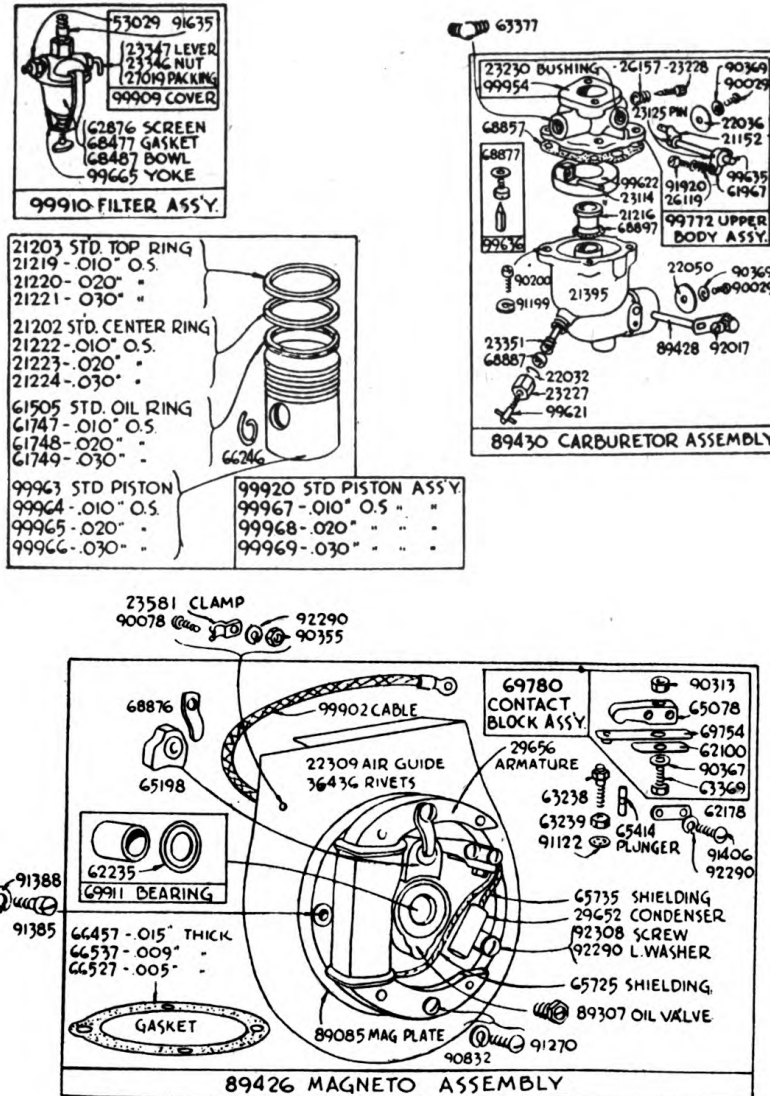 53029 91635
23347 LEVER
23346 NUT
27019 PACKING
99909 COVER
62876 SCREEN
68477 GASKET
68487 BOWL
99665 YOKE
99910-FILTER ASS'Y.
63377
23230 BUSHING
99954
26157-23228
90369
90029
23125 PIN
22036
21152
68857
68877
99622
23114
21216
68897
99636
91920
26119
99635
61967
99772 UPPER
BODY ASSY.
90200
91199
21395
22050
90369
90029
23351
68887
89428
92017
22032
23227
99621
89430 CARBURETOR ASSEMBLY
21203 STD. TOP RING
21219-.010" O.S.
21220-.020" "
21221-.030" "
21202 STD. CENTER RING
21222-.010" O.S.
21223-.020" "
21224-.030" "
61505 STD. OIL RING
61747-.010" O.S.
61748-.020" "
61749-.030" "
66246
99963 STD PISTON
99964-.010" O.S.
99965-.020" "
99966-.030" "
99920 STD PISTON ASS'Y.
99967-.010" O.S " "
99968-.020" " " "
99969-.030" " " "
23581 CLAMP
90078
92290
90355
68876
99902 CABLE
65198
22309 AIR GUIDE
36436 RIVETS
29656
ARMATURE
69780
CONTACT
BLOCK ASS'Y.
90313
65078
69754
62100
90367
63369
63238
63239
91122
65414
PLUNGER
62178
91406
92290
62235
69911 BEARING
91388
91385
65735 SHIELDING
29652 CONDENSER
92308 SCREW
92290 L.WASHER
65725 SHIELDING.
89307 OIL VALVE
66457-.015" THICK
66537-.009" "
66527-.005" "
GASKET
89085 MAG PLATE
90832
91270
89426 MAGNETO ASSEMBLY